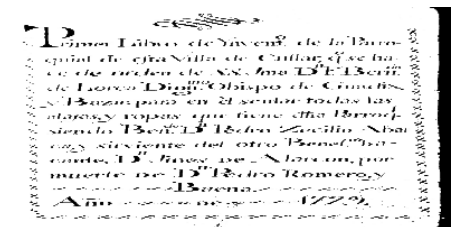 Primer Libro de Ynvent.º de la Parro-
quial de esta Villa de Cullar, q.e se ha-
ce de orden de S.S. Yma D.n F. Bern.do
de Lorca Dig.mo Obispo de Guadix
y Baza, para en él sentar todas las
alajas, y ropas que tiene esta Parroq.l
siendo Ben.do D.n Pedro
y sirviente del otro Benef.º va-
cante, D.n Gines de Alarcon, por
muerte de D.n Pedro Romero, y
Baena
Año